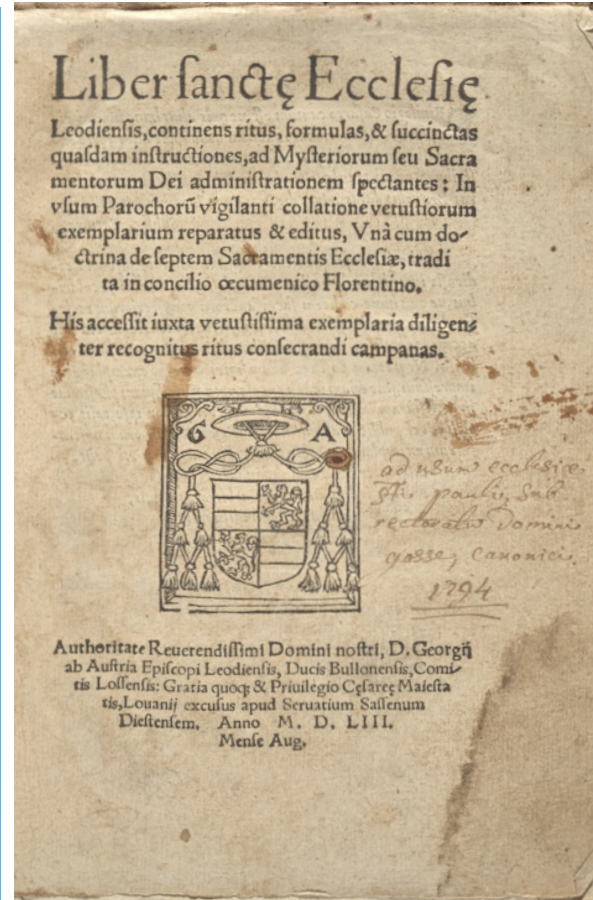 Liber sanctę Ecclesię
Leodiensis,continens ritus, formulas,& succinctas
quasdam instructiones,ad Mysteriorum seu Sacra
mentorum Dei administrationem spectantes: In
vsum Parochorū vigilanti collatione vetustiorum
exemplarium reparatus & editus, Vnà cum do-
ctrina de septem Sacramentis Ecclesiæ, tradi
ta in concilio œcumenico Florentino.
His accessit iuxta vetustissima exemplaria diligen-
ter recognitus ritus consecrandi campanas.
G A
ad usum ecclesiæ
Sti pauli, sub
rectoratu Domini
gosse, canonici.
1794
Authoritate Reuerendissimi Domini nostri, D. Georgij
ab Austria Episcopi Leodiensis, Ducis Bullonensis,Comi-
tis Lossensis: Gratia quoq; & Priuilegio Cęsareę Maiesta
tis,Louanij excusus apud Seruatium Sassenum
Diestensem. Anno M. D. LIII.
Mense Aug.